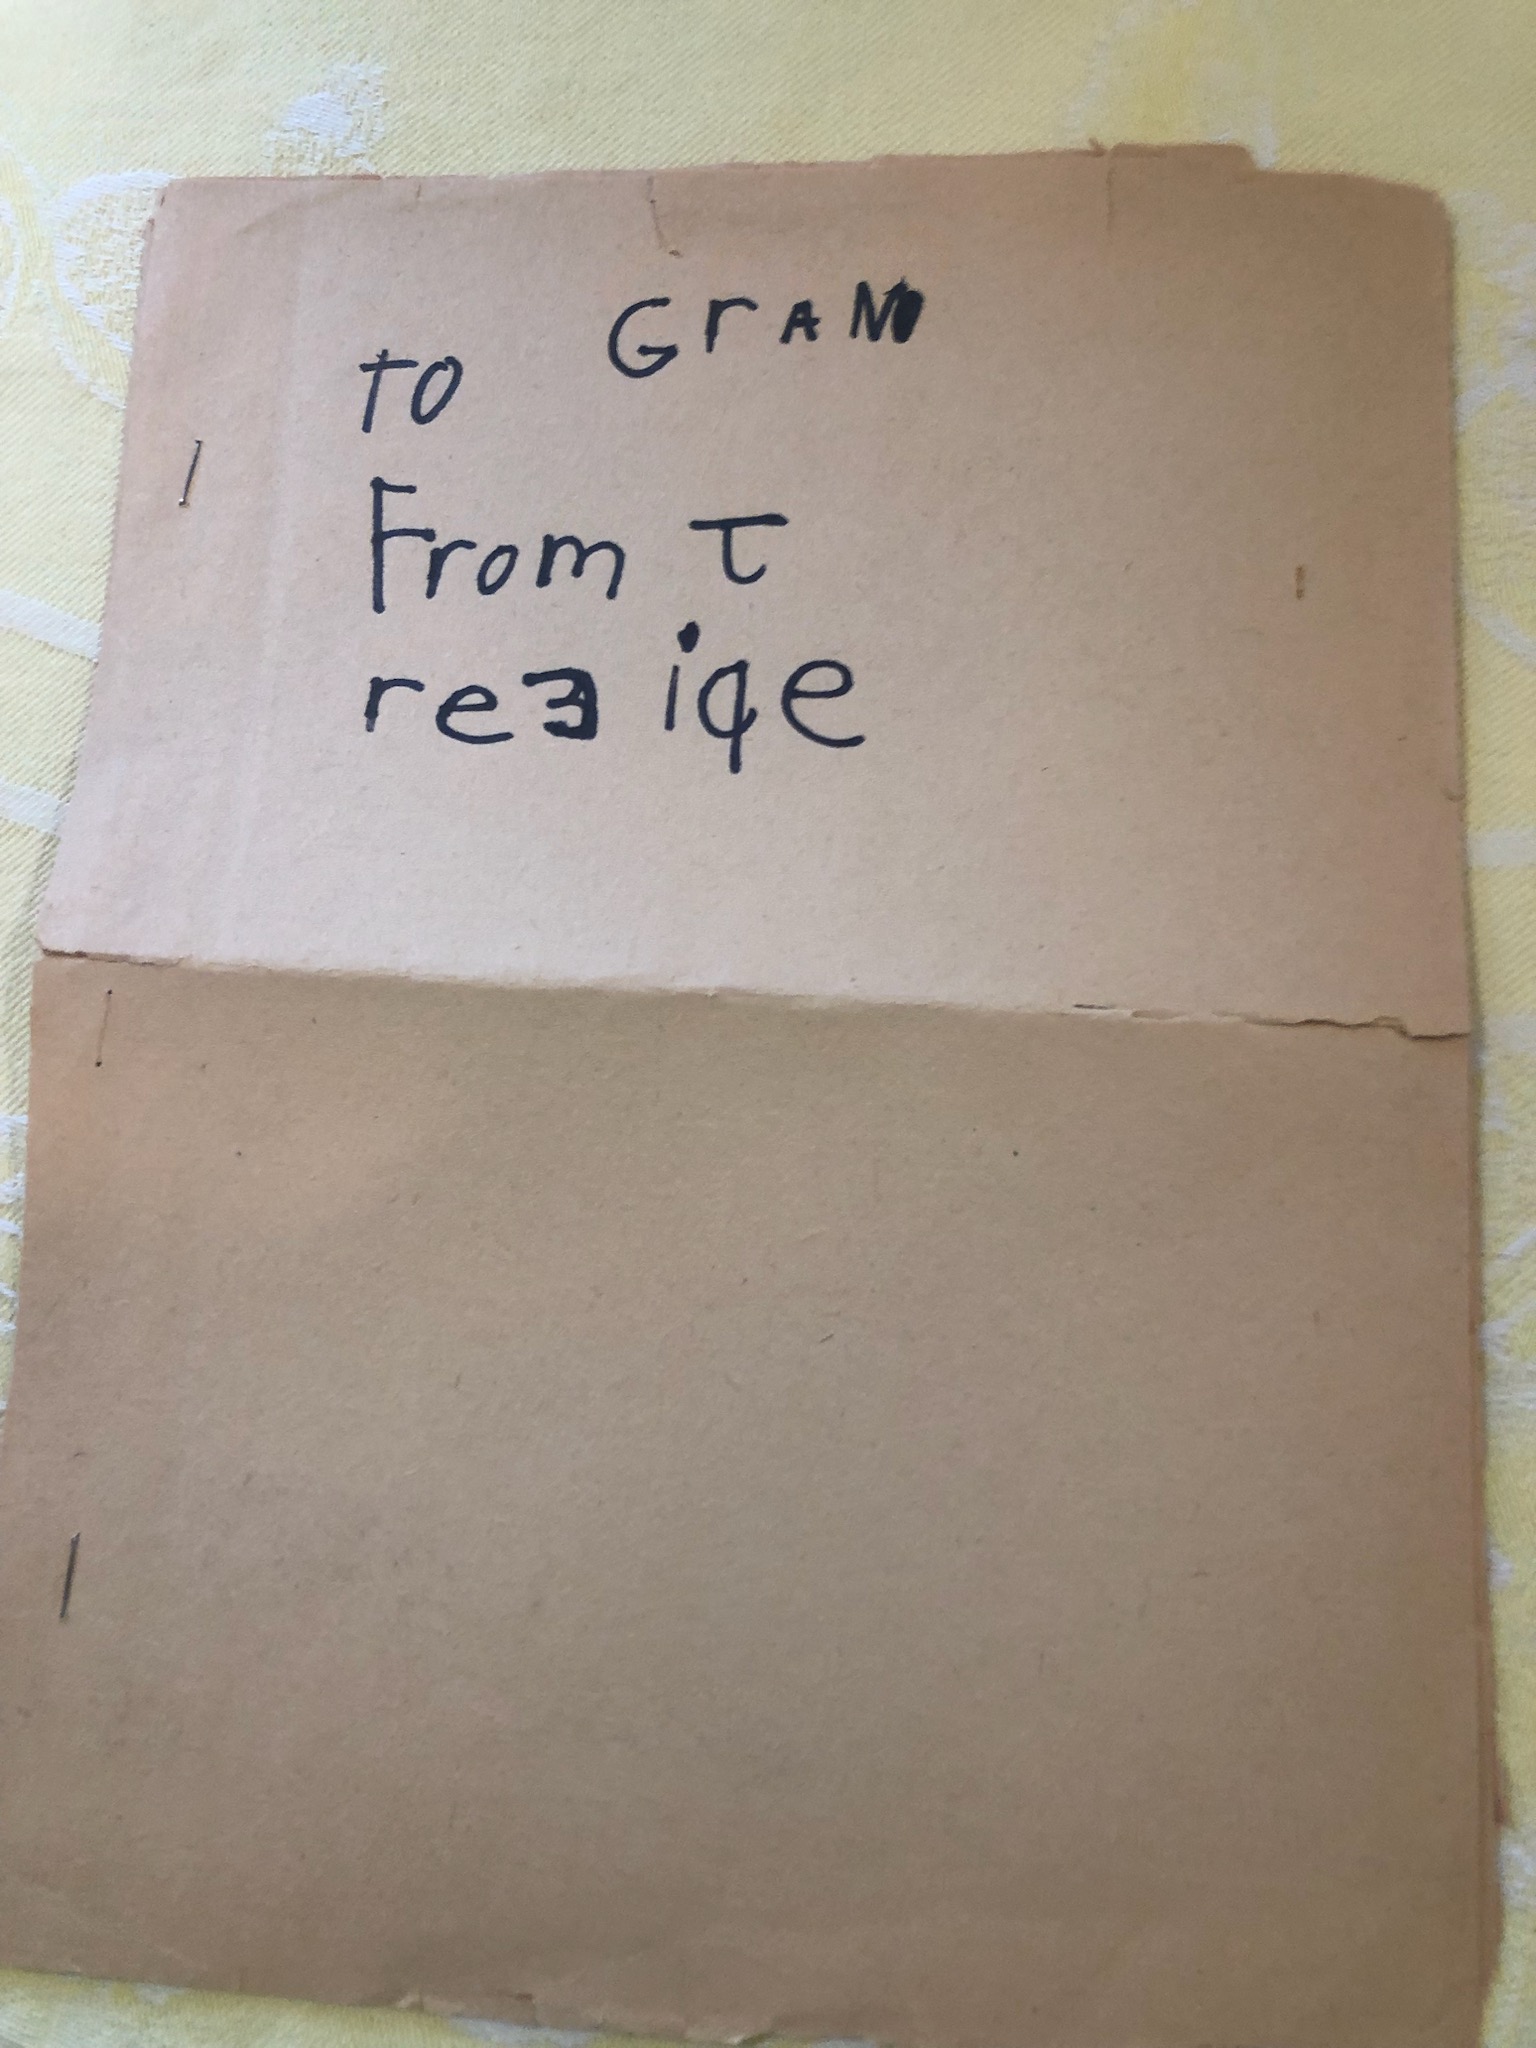 TO GrAN
From T
reE iqe